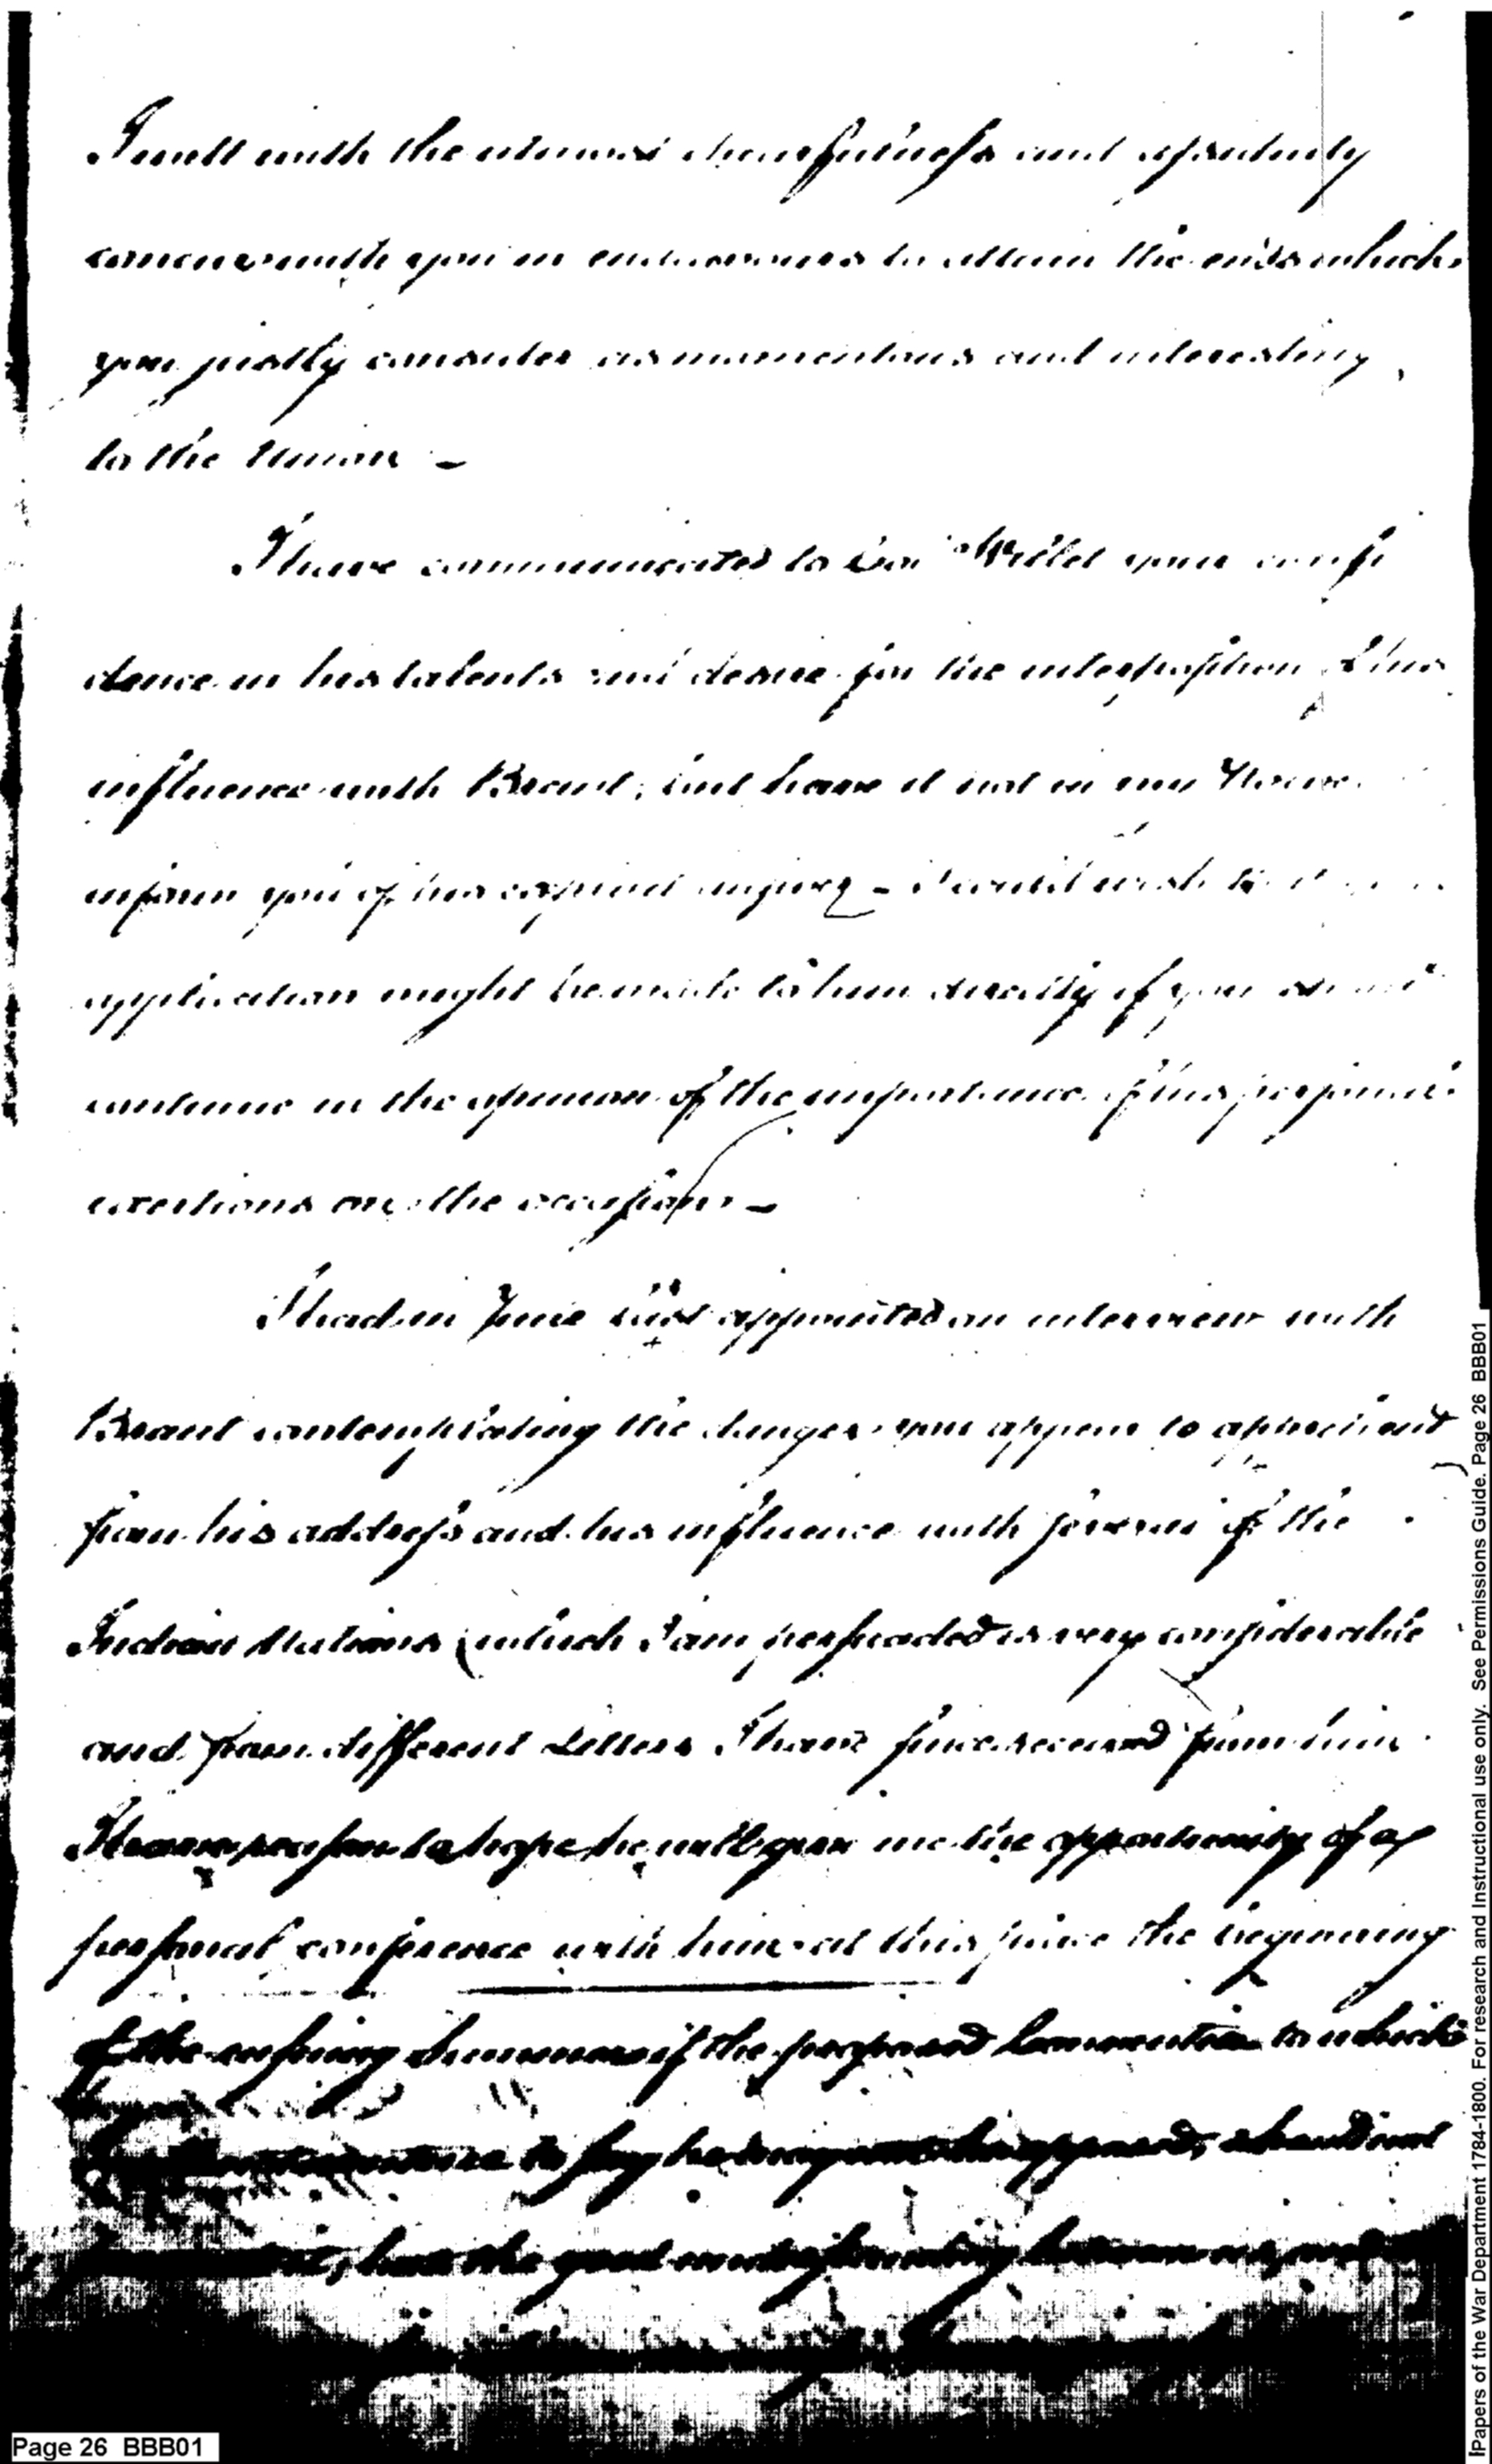 I will with the utmost chearfulness and assiduity
concur with you in endeavours to attain the ends which
you justly consider as momentous and interesting
to the Union —
I have communicated to Coll Willet your confi
dence in his talents and desire for the interposition of his
influence with Brant; but have it not in my Power
inform you of his explicit answer — I could wish
application might be made to him directly if you
continue in the opinion of the importance of his personal
exertions on the occasion —
I had in June last appointed an interview with
Brant contemplating the danger you appear to apprehend
from his address and his influence with several of the
Indian Nations (which I am persuaded is very considerable
and from different Letters I have since received from him
I have reason to hope he will give me the opportunity of a
personal conference with him at this place the beginning
of the ensuing Summer if the proposed Convention to which
to say he
, but the good understanding between
Page 26 BBB01
Papers of the War Department 1784-1800. For research and Instructional use only. See Permissions Guide. Page 26 BBB01